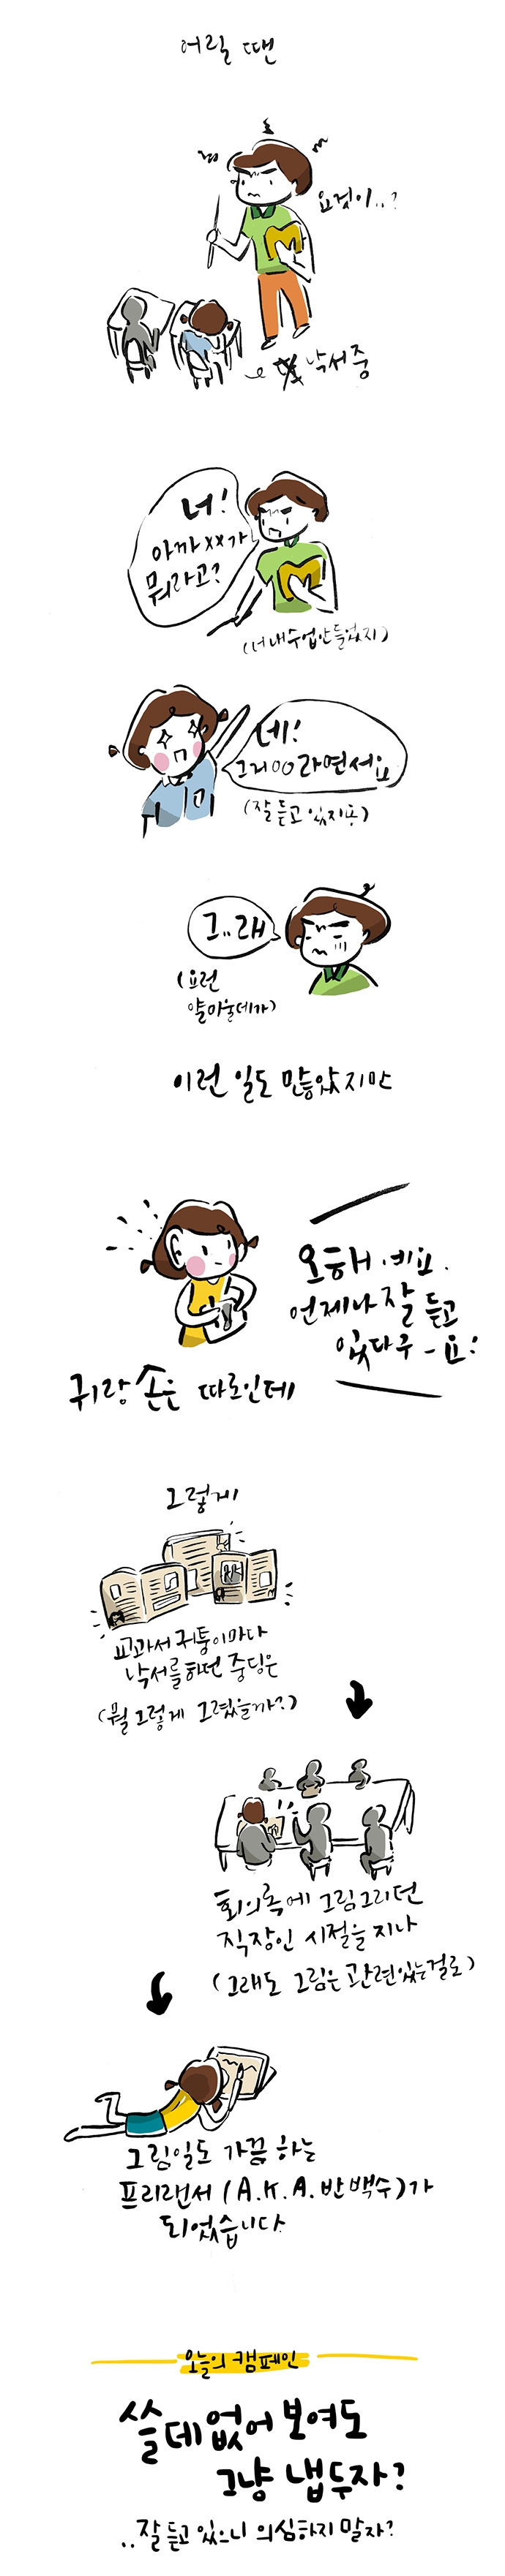 어릴 땐
요것이..?
낙서중
너!
아까 xx가
뭐라고?
(너 내 수업 안 들었지)
네!
그거 ○○라면서요
(잘 듣고 있지용)
그..래
(요런
얄미울데가)
이런 일도 많았지만
오해.예요.
언제나 잘 듣고
있다구-요!
귀랑 손은 따로인데
그렇게
교과서 귀퉁이마다
낙서를 하던 중딩은
(뭘 그렇게 그렸을까?)
회의록에 그림그리던
직장인 시절을 지나
(그래도 그림은 관련있는걸로)
그림일도 가끔 하는
프리랜서 (A.K.A. 반백수)가
되었습니다
오늘의 캠페인
쓸데없어 보여도
그냥 냅두자?
..잘 듣고 있으니 의심하지 말자?